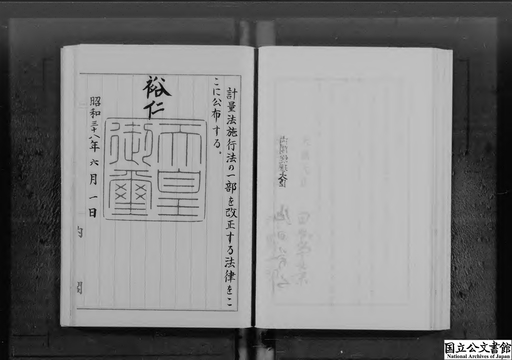 計量法施行法の一部を改正する法律をこ
こに公布する。
裕仁
天皇
御璽
昭和三十八年六月一日
内閣
国立公文書館
National Archives of Japan